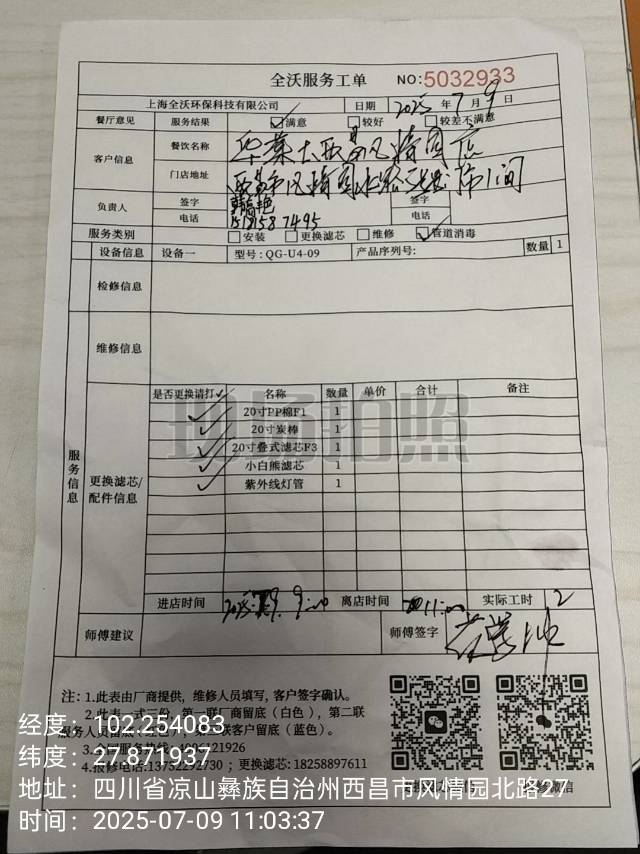 全沃服务工单 NO:5032933
上海全沃环保科技有限公司 日期 2025年7月9日
餐厅意见 服务结果 满意 较好 较差不满意
客户信息 餐饮名称
门店地址
负责人 签字 签字
电话 电话
服务类别 安装 更换滤芯 维修 管道消毒
设备信息 设备一 型号:QG-U4-09 产品序列号: 数量 1
检修信息
维修信息
服务信息
更换滤芯/配件信息
是否更换请打✓ 名称 数量 单价 合计 备注
✓ 20寸PP棉F1 1
✓ 20寸炭棒 1
✓ 20寸叠式滤芯F3 1
✓ 小白熊滤芯 1
✓ 紫外线灯管 1
现场拍照
进店时间 离店时间 11:00 实际工时 2
师傅建议 师傅签字
注:1.此表由厂商提供,维修人员填写,客户签字确认。
2.此表一式三份,第一联厂商留底(白色),第二联
客户留底(蓝色)。
4.报修电话:13752292730;更换滤芯:18258897611
经度:102.254083
纬度:27.871937
地址:四川省凉山彝族自治州西昌市风情园北路27
时间:2025-07-09 11:03:37